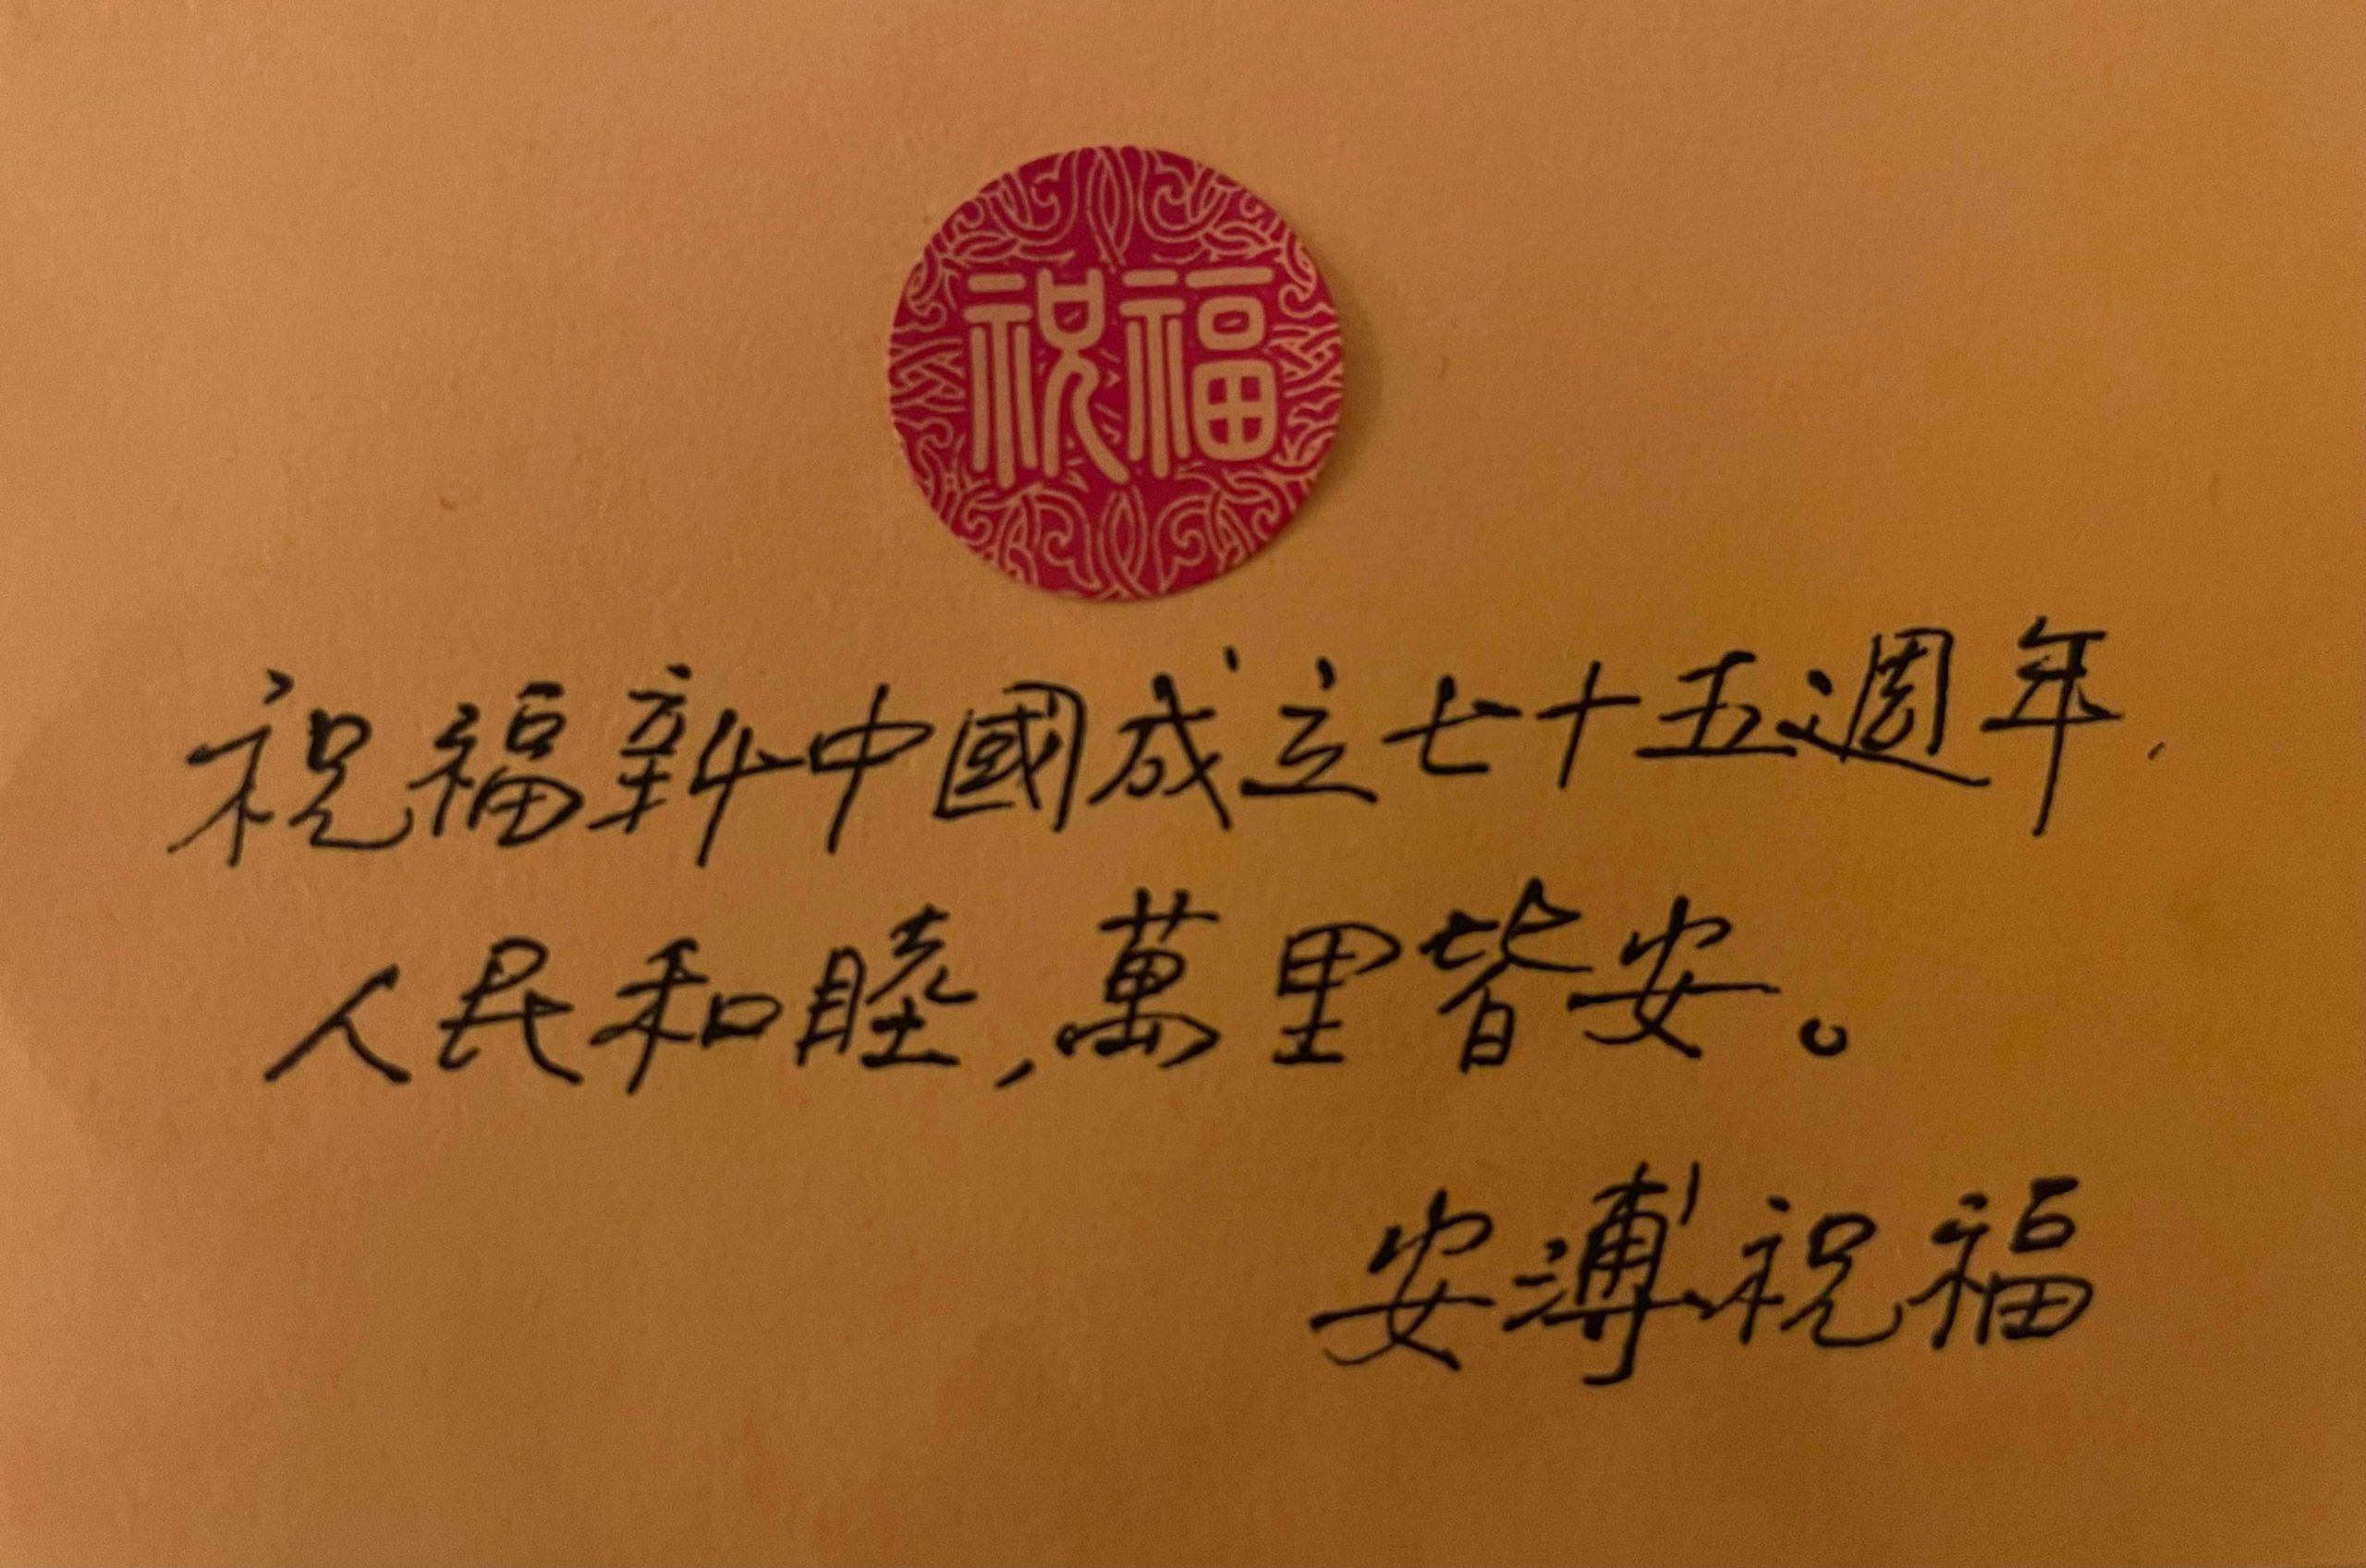 祝福
祝福新中國成立七十五週年，
人民和睦，萬里皆安。
安溥祝福